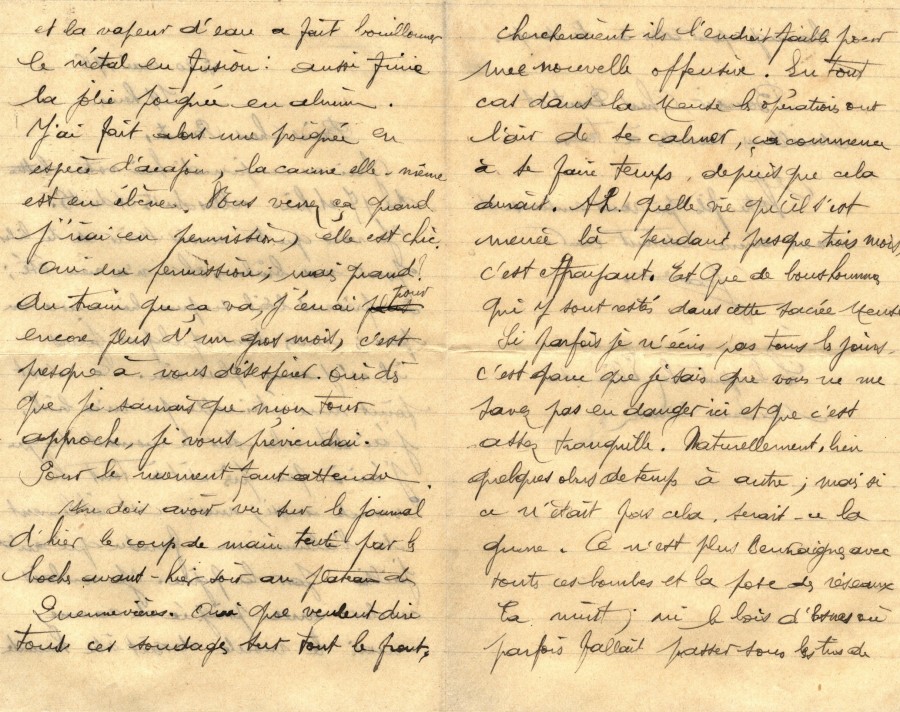 et la vapeur d'eau a fait bouillonner
le métal en fusion : aussi finie
la jolie poignée en alumin.
J'ai fait alors une poignée en
espèce d'acajou, la canne elle-même
est en ébène. Vous verrez ça quand
j'irai en permission, elle est chic.
Oui en permission ; mais quand ?
Au train que ça va, j'en ai pour
encore plus d'un gros mois, c'est
presque à vous désespérer. Oui dès
que je saurais que mon tour
approche, je vous préviendrai.
Pour le moment faut attendre.
dois avoir vu sur le journal
d'hier le coup de main tenté par les
boches avant-hier soir au plateau de
Quennevières. que veulent dire
tous ces sondages sur tout le front,
chercheraient-ils l'endroit faible pour
une nouvelle offensive. En tout
cas dans la Meuse les opérations ont
l'air de se calmer, ça commence
à se faire temps, depuis que cela
durait. Ah ! quelle vie qu'il s'est
menée là pendant presque trois mois,
c'est effrayant. Et que de bonshommes
qui y sont restés dans cette sacrée Meuse
Si parfois je n'écris pas tous les jours
c'est parce que je sais que vous ne me
savez pas en danger ici et que c'est
assez tranquille. Naturellement, bien
quelques obus de temps à autre ; mais si
ce n'était pas cela, serait-ce la
guerre. Ce n'est plus avec
toutes ces bombes et la pose des réseaux
la nuit ; ni le bois d'Esnes où
parfois fallait passer sous les tirs de